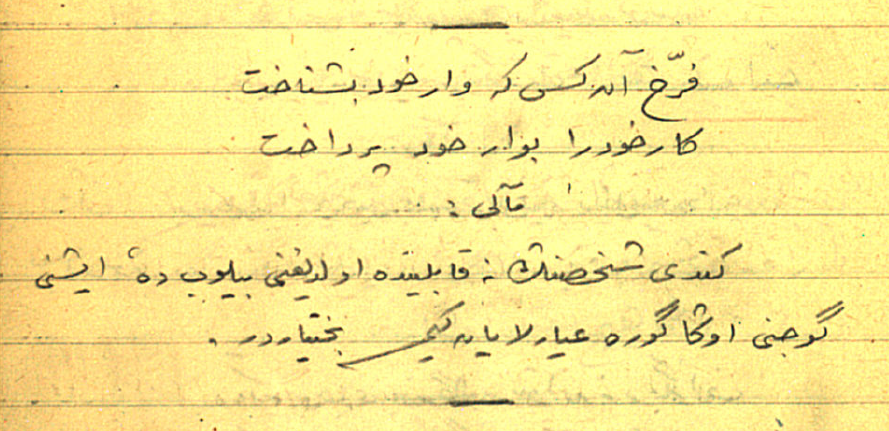 فرّخ آن کس که وار خود بشناخت
کار خود را بوار خود پرداخت
مآلی :
کندی شخصنك نه قابلیتده اولدیغنی بیلوب ده، ایشنی
گوجنی اوڭا گوره عیارلایان کیمسه بختیاردر .